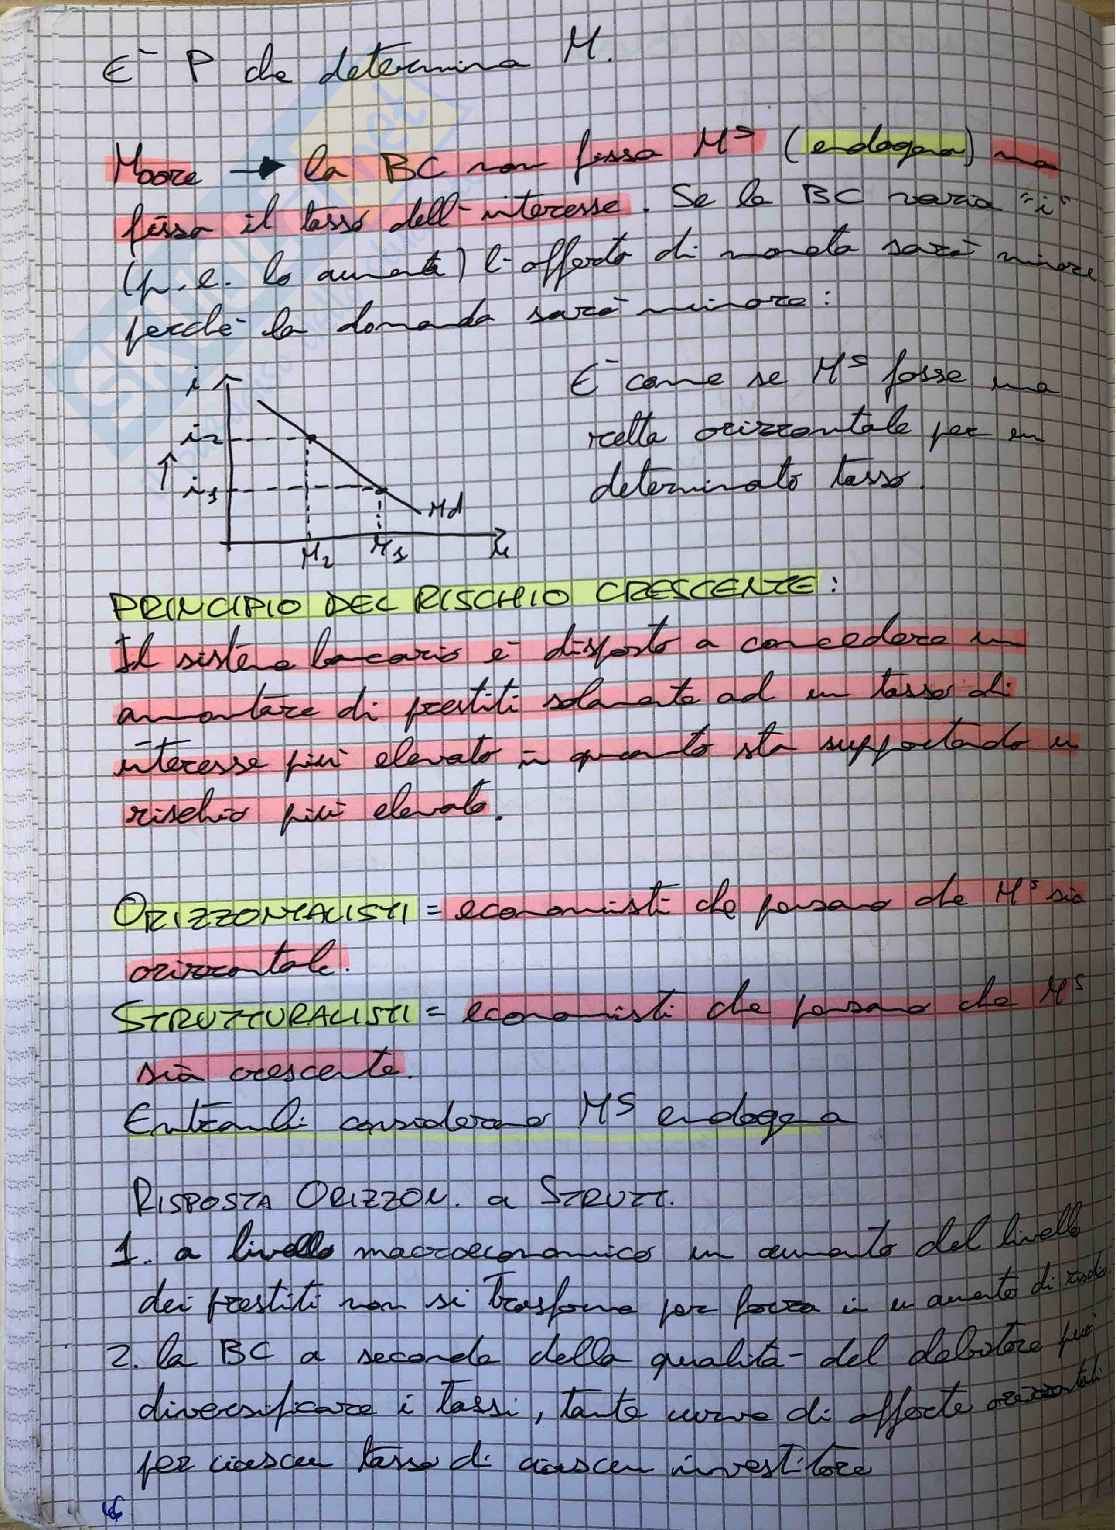 E' P che determina M.
Moore → la BC non fissa Mˢ (endogena) ma
fissa il tasso dell'interesse. Se la BC varia "i"
(p.e. lo aumenta) l'offerta di moneta sarà minore
perché la domanda sarà minore:
i
i₂
↑ i₁
Md
M₂ M₁
E' come se Mˢ fosse una
retta orizzontale per un
determinato tasso.
PRINCIPIO DEL RISCHIO CRESCENTE:
Il sistema bancario è disposto a concedere un
ammontare di prestiti solamente ad un tasso di
interesse più elevato in quanto sta supportando un
rischio più elevato.
ORIZZONTALISTI = economisti che pensano che Mˢ sia
orizzontale.
STRUTTURALISTI = economisti che pensano che Mˢ
sia crescente.
Entrambi considerano Mˢ endogena
RISPOSTA ORIZZON. a STRUTT.
1. a livello macroeconomico un aumento del livello
dei prestiti non si trasforma per forza in un aumento di rischio
2. la BC a seconda della qualità del debitore può
diversificare i tassi, tante curve di offerte orizzontali
per ciascun tasso di ciascun investitore